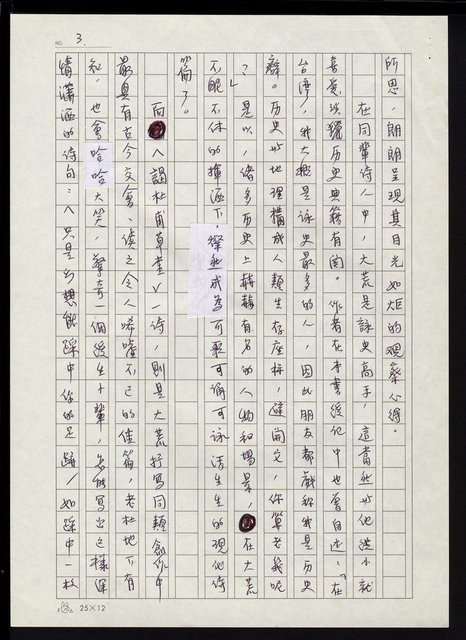 所思，朗朗呈現其目光如炬的觀察心得。
在同輩詩人中，大荒是詠史高手，這當然與他從小就
喜愛涉獵历史典籍有関。作者在本書後記中也曾自述：「在
台湾，我大概是詠史最多的人，因此朋友都戲称我是历史
癖。历史与地理構成人類生存座标，避開文，你算老幾呢
？」是以，諸多历史上赫赫有名的人物和場景，在大荒
不眠不休的揮洒下，燦然成為可歌可誦可詠活生生的現代詩
篇了。
而〈謁杜甫草堂〉一詩，則是大荒抒寫同類創作中
最具有古今交會、讀之令人唏噓不已的佳篇，老杜地下有
知，也會哈哈大笑，驚奇一個後生小輩，怎能寫出這樣深
情瀟洒的詩句：〈只是幻想能踩中你的足跡／如踩中一枚
NO. 3.
25×12